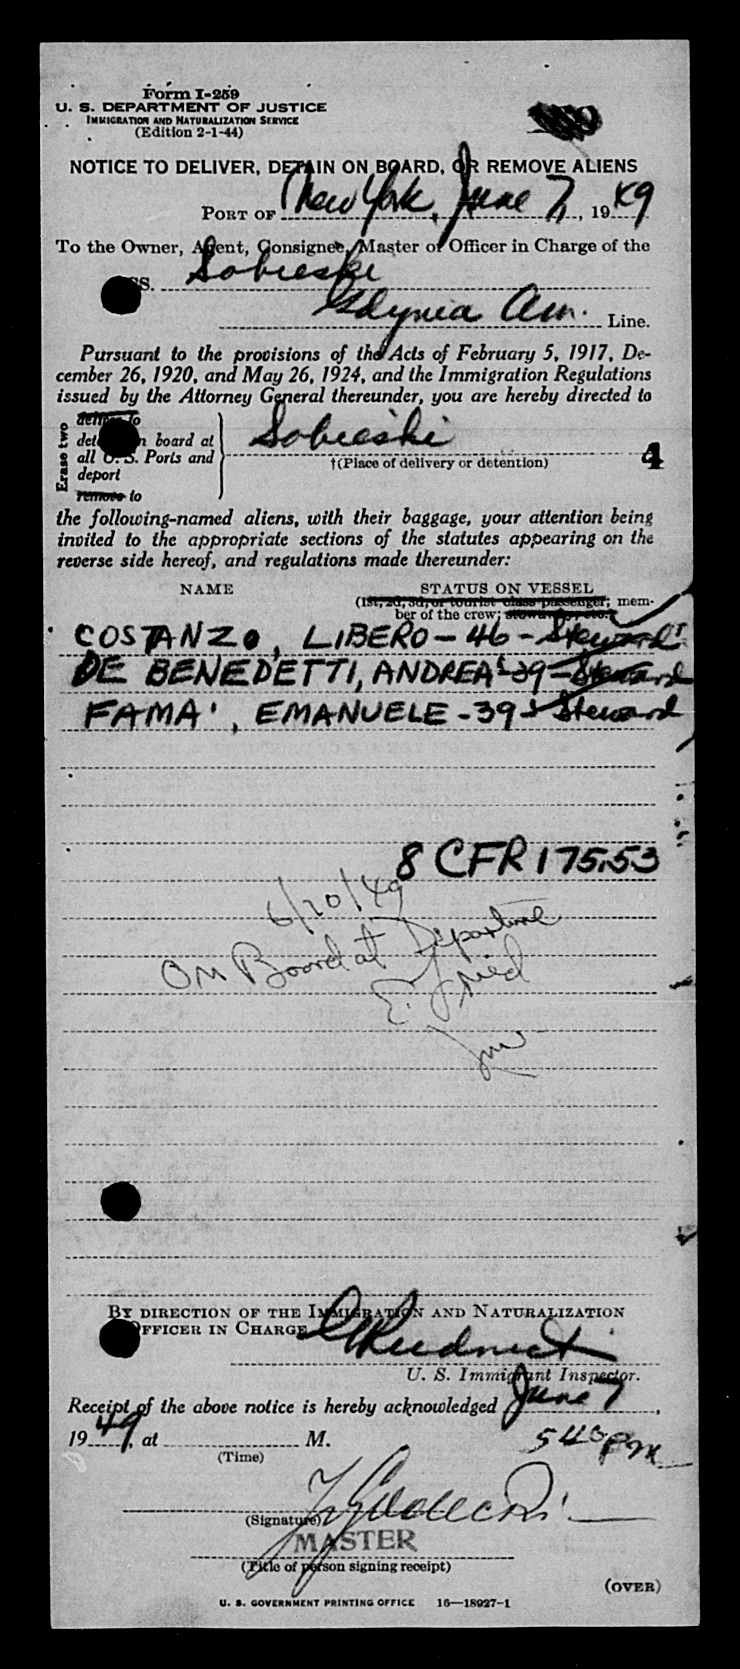 Form I-259
U. S. DEPARTMENT OF JUSTICE
IMMIGRATION AND NATURALIZATION SERVICE
(Edition 2-1-44)
NOTICE TO DELIVER, DETAIN ON BOARD, OR REMOVE ALIENS
PORT OF New York, June 7, 1949
To the Owner, Agent, Consignee, Master or Officer in Charge of the
SS. Sobieski
Gdynia Am. Line.
Pursuant to the provisions of the Acts of February 5, 1917, De-
cember 26, 1920, and May 26, 1924, and the Immigration Regulations
issued by the Attorney General thereunder, you are hereby directed to
Erase two
deliver to
detain on board at
all U. S. Ports and
deport
remove to
Sobieski
†(Place of delivery or detention)
4
the following-named aliens, with their baggage, your attention being
invited to the appropriate sections of the statutes appearing on the
reverse side hereof, and regulations made thereunder:
NAME STATUS ON VESSEL
(1st, 2d, 3d, or tourist class passenger; mem-
ber of the crew;
COSTANZO, LIBERO - 46 - Steward
DE BENEDETTI, ANDREA - 39 - Steward
FAMA', EMANUELE - 39 - Steward
8 CFR 175.53
6/20/49
On Board at Departure
E. Fried
BY DIRECTION OF THE IMMIGRATION AND NATURALIZATION
OFFICER IN CHARGE
U. S. Immigrant Inspector.
Receipt of the above notice is hereby acknowledged June 7,
1949, at M. 540 PM
(Time)
(Signature)
MASTER
(Title of person signing receipt)
(OVER)
U. S. GOVERNMENT PRINTING OFFICE 16—18927-1